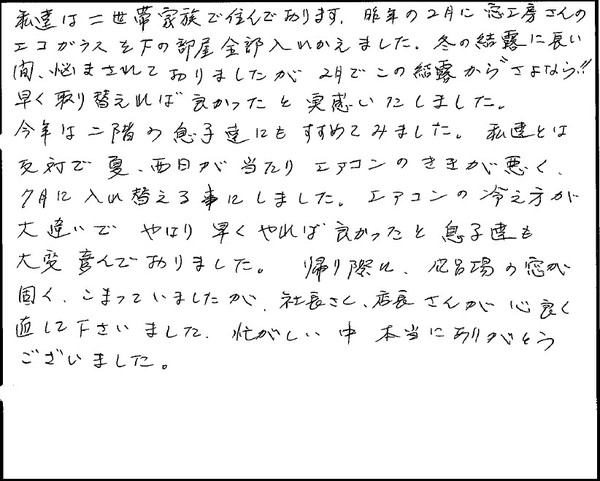 私達は二世帯家族で住んでおります。昨年の2月に窓工房さんの
エコガラスを下の部屋全部入れかえました。冬の結露に長い
間、悩まされておりましたが2月でこの結露から"さよなら!!"
早く取り替えれば良かったと実感いたしました。
今年は二階の息子達にもすすめてみました。私達とは
反対で夏、西日が当たりエアコンのききが悪く、
7月に入れ替える事にしました。エアコンの冷え方が
大違いでやはり早くやれば良かったと息子達も
大変喜んでおりました。帰り際に、風呂場の窓が
固く、こまっていましたが、社長さん、店長さんが心良く
直して下さいました。忙がしい中本当にありがとう
ございました。